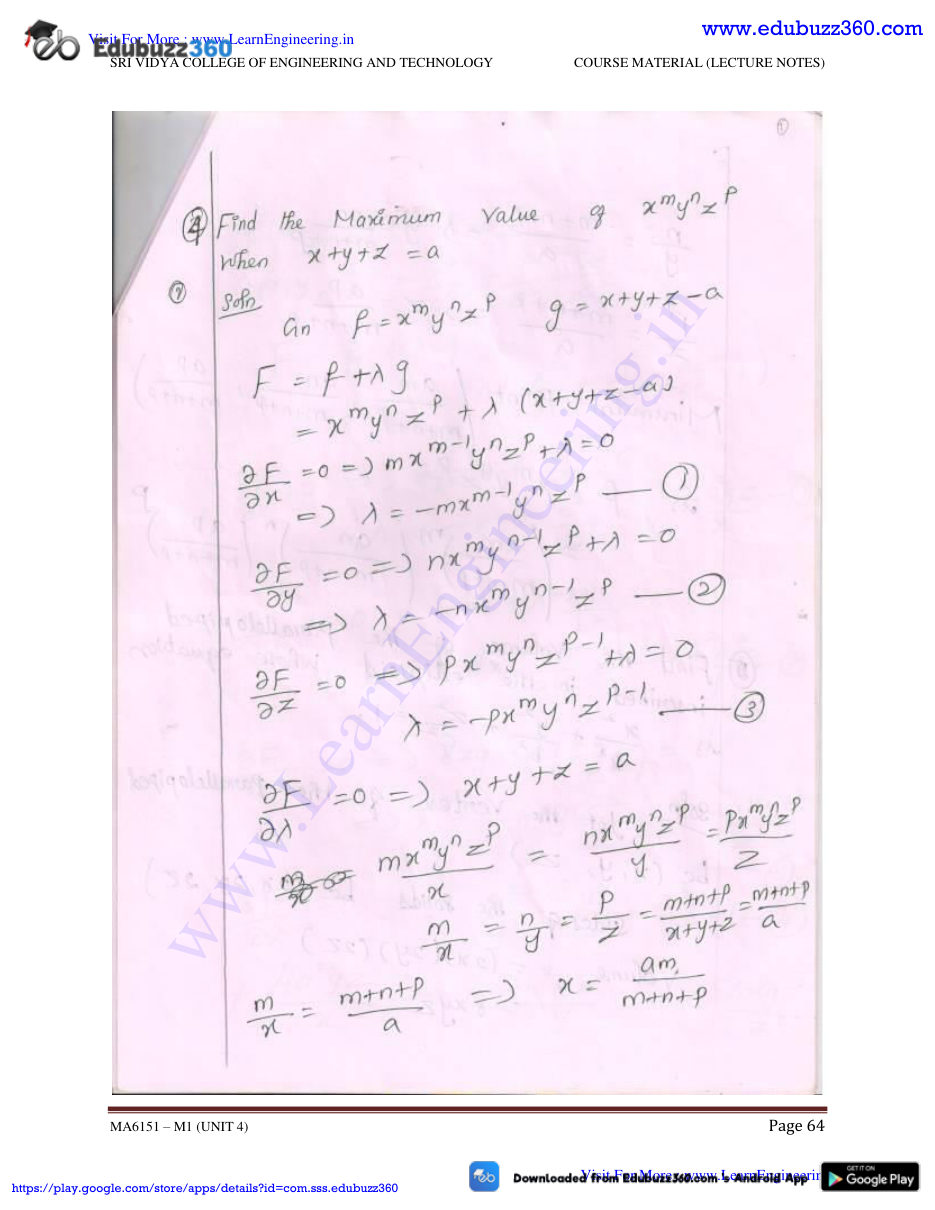 Visit For More : www.LearnEngineering.in
Edubuzz360
www.edubuzz360.com
SRI VIDYA COLLEGE OF ENGINEERING AND TECHNOLOGY COURSE MATERIAL (LECTURE NOTES)
①
④ Find the Maximum Value of x^m y^n z^p
when x+y+z = a
Soln
Gn f = x^m y^n z^p g = x+y+z-a
F = f + λ g
= x^m y^n z^p + λ (x+y+z-a)
∂F/∂x = 0 => m x^{m-1} y^n z^p + λ = 0
=> λ = -m x^{m-1} y^n z^p — ①
∂F/∂y = 0 => n x^m y^{n-1} z^p + λ = 0
=> λ = -n x^m y^{n-1} z^p — ②
∂F/∂z = 0 => p x^m y^n z^{p-1} + λ = 0
λ = -p x^m y^n z^{p-1} — ③
∂F/∂λ = 0 => x+y+z = a
m x^m y^n z^p / x = n x^m y^n z^p / y = p x^m y^n z^p / z
m/x = n/y = p/z = m+n+p / x+y+z = m+n+p / a
m/x = m+n+p / a => x = am / m+n+p
www.LearnEngineering.in
MA6151 – M1 (UNIT 4) Page 64
https://play.google.com/store/apps/details?id=com.sss.edubuzz360
Downloaded from EduBuzz360.com 's Android App
Visit For More : www.LearnEngineerin
GET IT ON
Google Play